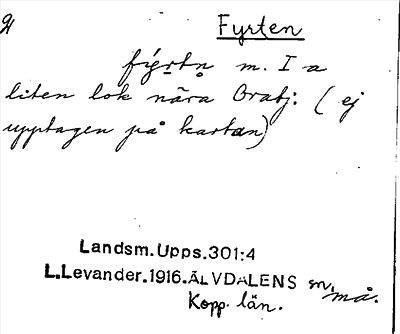 Fyrten
fy̆rtn̥ m. I a
liten lok nära Oratj: (ej
upptagen på kartan)
Landsm.Upps.301:4
L.Levander.1916.ÄLVDALENS sn. må.
Kopp. län.